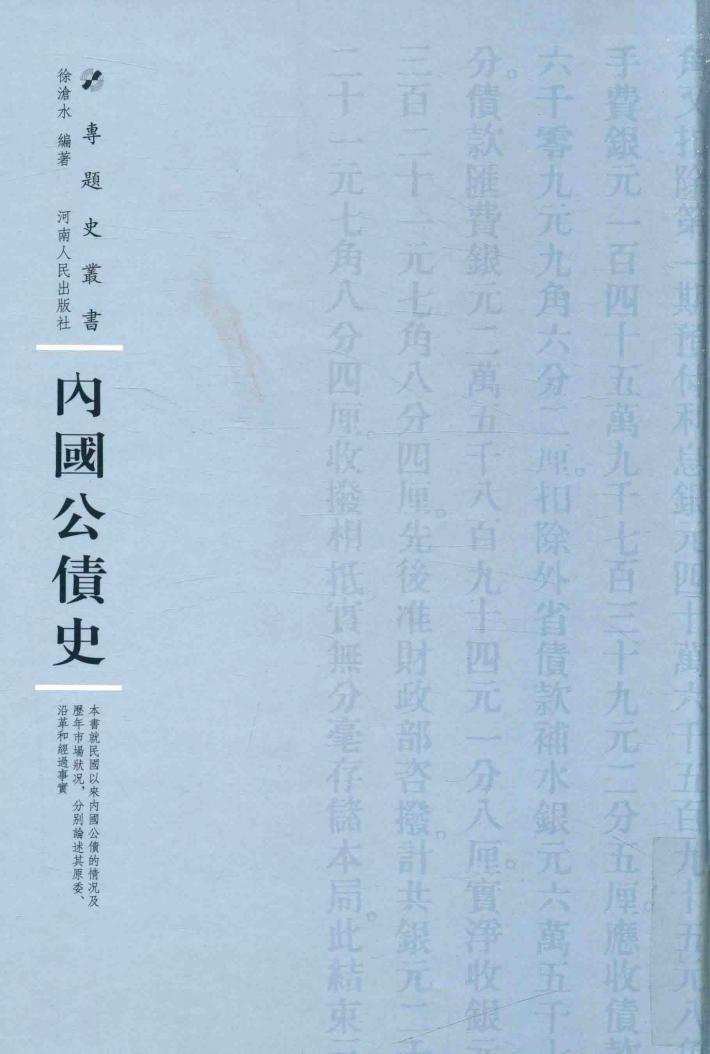 角又扣除第一期預付利息銀元四十萬六千五百九十五元八角
手費銀元一百四十五萬九千七百三十九元二分五厘。應收債款
六千零九元九角六分二厘。扣除外省債款補水銀元六萬五千
分。債款匯費銀元二萬五千八百九十四元一分八厘。實淨收銀元
三百二十一元七角八分四厘。先後准財政部咨撥。計共銀元二
二十一元七角八分四厘。收撥相抵實無分毫存儲本局。此結束
專題史叢書
徐滄水 編著 河南人民出版社
內國公債史
本書就民國以來內國公債的情況及
歷年市場狀況，分別論述其原委、
沿革和經過事實